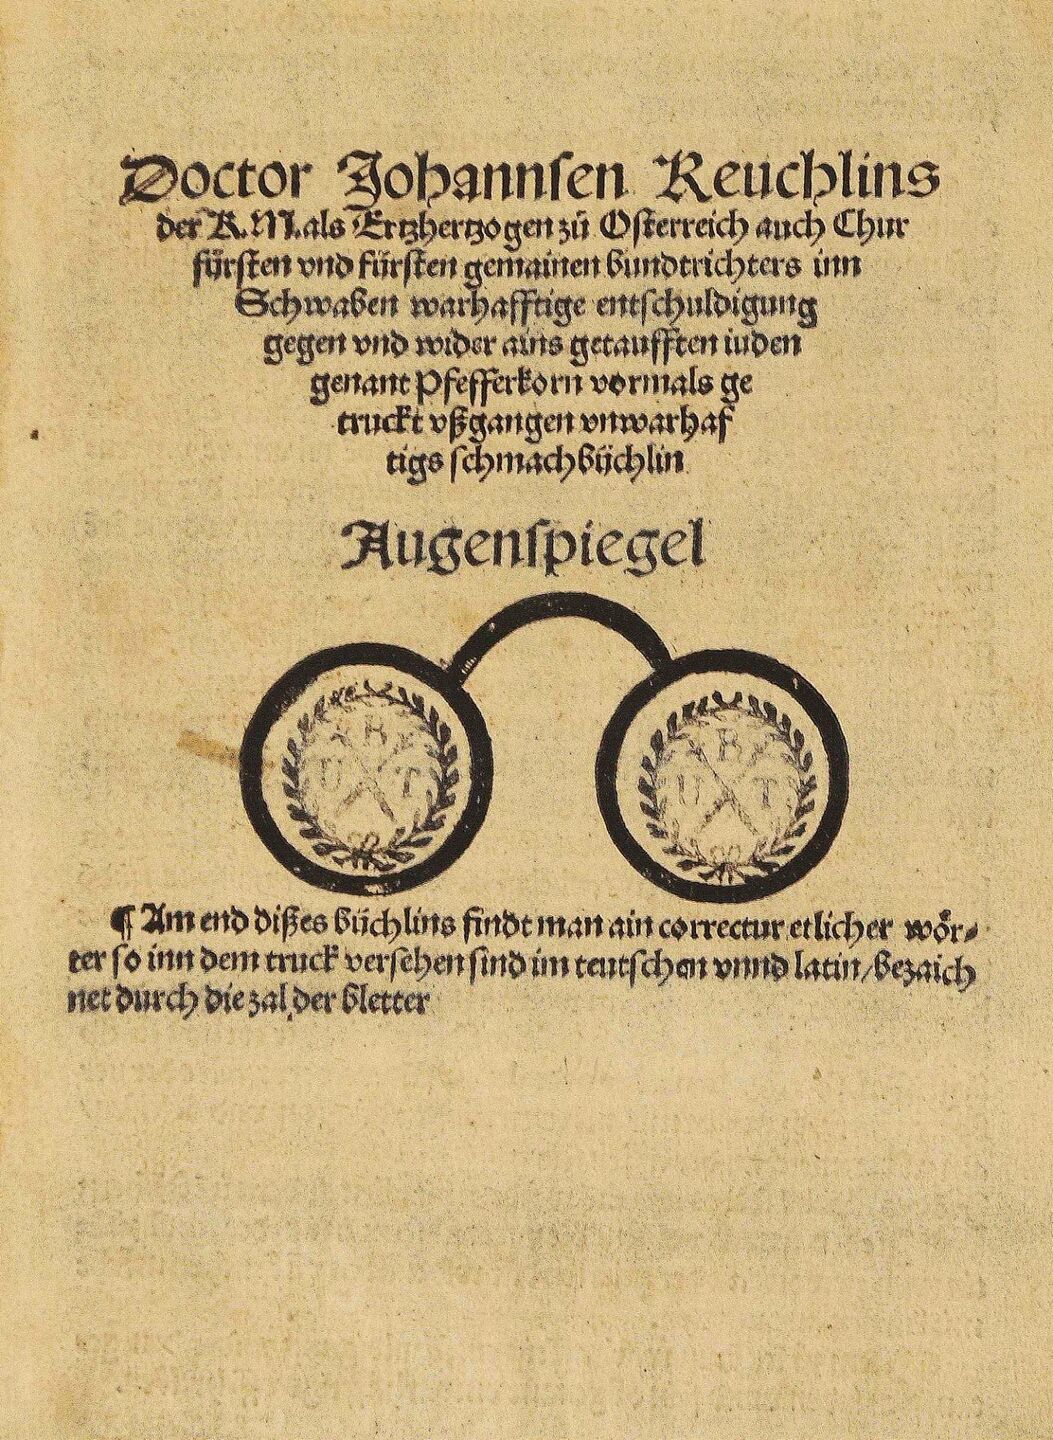 Doctor Johannsen Reuchlins
der K.M. als Ertzhertzogen zů Osterreich auch Chur
fürsten vnd fürsten gemainen bundtrichters inn
Schwaben warhafftige entschuldigung
gegen vnd wider ains getaufften iuden
genant Pfefferkorn vormals ge
truckt vßgangen vnwarhaf
tigs schmachbüchlin
Augenspiegel
B B
U T U T
¶ Am end dißes büchlins findt man ain correctur etlicher woͤr⸗
ter so inn dem truck versehen sind im teutschen vnnd latin/bezaich
net durch die zal der bletter